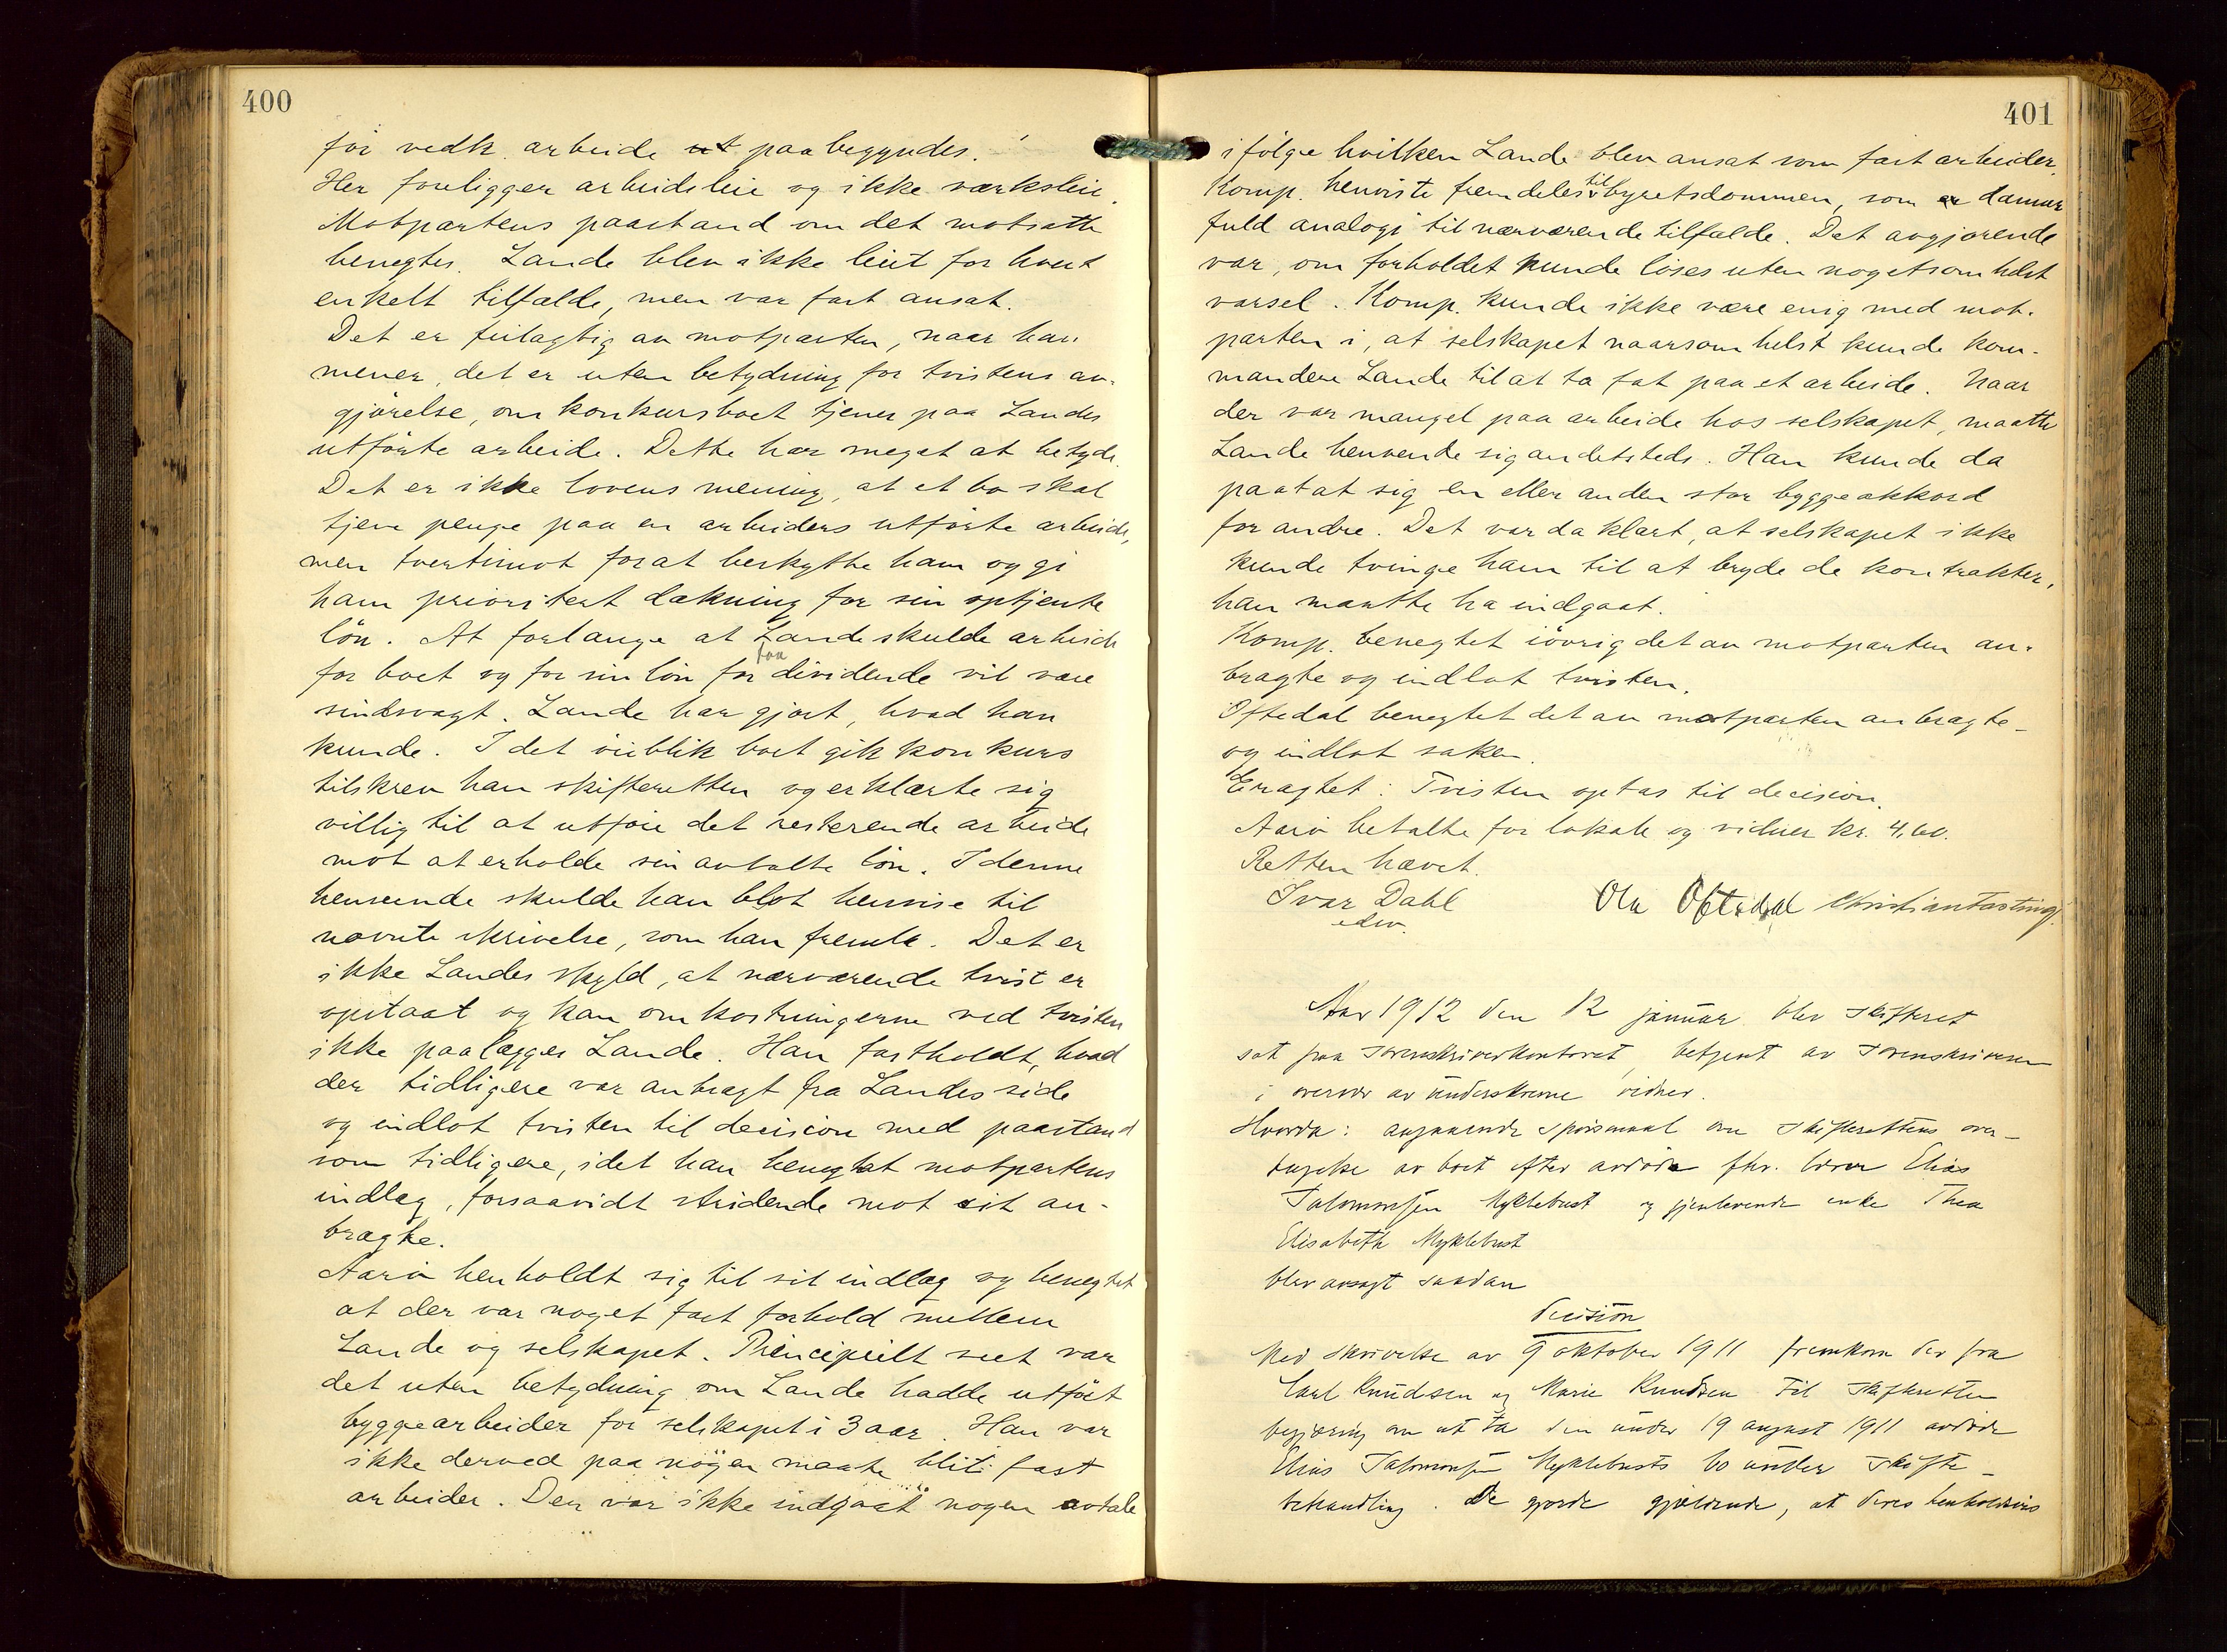 400
før vedk. arbeide ut paabegyndes.
Her foreligger arbeidsleie og ikke verksleie.
Motpartens paastand om det motsatte
benegtes. Lande blev ikke leiet for hvert
enkelt tilfælde, men var fast ansat.
Det er feilagtig av motparten, naar han
mener, det er uten betydning for tvistens av-
gjørelse, om konkursboet tjener paa Landes
utførte arbeide. Dette har meget at betyde.
Det er ikke lovens mening, at et bo skal
tjene penge paa en arbeiders utførte arbeide,
men tvertimot forat beskytte ham og gi
ham prioritert dækning for sin optjente
løn. At forlange at Lande skulde arbeide
for boet og for sin løn for faa dividende vil være
sindsvagt. Lande har gjort, hvad han
kunde. I det øieblik boet gik konkurs
tilskrev han skifteretten og erklærte sig
villig til at utføre det resterende arbeide
mot at erholde sin avtalte løn. I denne
henseende skulde han blot henvise til
nævnte skrivelse, som han fremla. Det er
ikke Landes skyld, at nærværende tvist er
opstaat og kan omkostningerne ved tvisten
ikke paalægges Lande. Han fastholdt, hvad
der tidligere var anbragt fra Landes side
og indlot tvisten til decision med paastand
som tidligere, idet han benegtet motpartens
indlæg, forsaavidt stridende mot sit an-
bragte.
Aarø henholdt sig til sit indlæg og benegtet
at der var noget fast forhold mellem
Lande og selskapet. Principielt seet var
det uten betydning om Lande hadde utført
byggearbeider for selskapet i 3 aar. Han var
ikke derved paa nogen maate blit fast
arbeider. Der var ikke indgaat nogen avtale
401
ifølge hvilken Lande blev ansat som fast arbeider.
Komp. henviste fremdeles til byretsdommen, som er danner
fuld analogi til nærværende tilfælde. Det avgjørende
var, om forholdet kunde løses uten nogetsomhelst
varsel. Komp. kunde ikke være enig med mot-
parten i, at selskapet naarsomhelst kunde kom-
mandere Lande til at ta fat paa et arbeide. Naar
der var mangel paa arbeide hos selskapet, maatte
Lande henvende sig andetsteds. Han kunde da
paatat sig en eller anden stor byggeakkord
for andre. Det var da klart, at selskapet ikke
kunde tvinge ham til at bryde de kontrakter,
han maatte ha indgaat.
Komp. benegtet iøvrig det av motparten an-
bragte og indlot tvisten.
Oftedal benegtet det av motparten anbragte
og indlot saken.
Eragtet: Tvisten optas til decision.
Aarø betalte for lokale og vidner kr. 4,60.
Retten hævet.
Ivar Dahl Ola Oftedal Christian Fasting.
edsv.
Aar 1912 den 12 januar blev skifteret
sat paa sorenskriverkontoret, betjent av sorenskriveren
i overvær av underskrevne vidner.
Hvorda: angaaende spørsmaal om skifterettens over-
tagelse av boet efter avdøde fhv. lærer Elias
Salomonsen Myklebust og gjenlevende enke Thea
Elisabeth Myklebust
blev avsagt saadan
decision
Med skrivelse av 9 oktober 1911 fremkom der fra
Carl Knudsen og Marie Knudsen til skifteretten
begjæring om at ta den under 19 august 1911 avdøde
Elias Salomonsen Myklebusts bo under skifte-
behandling. De gjorde gjældende, at deres henholdsvis